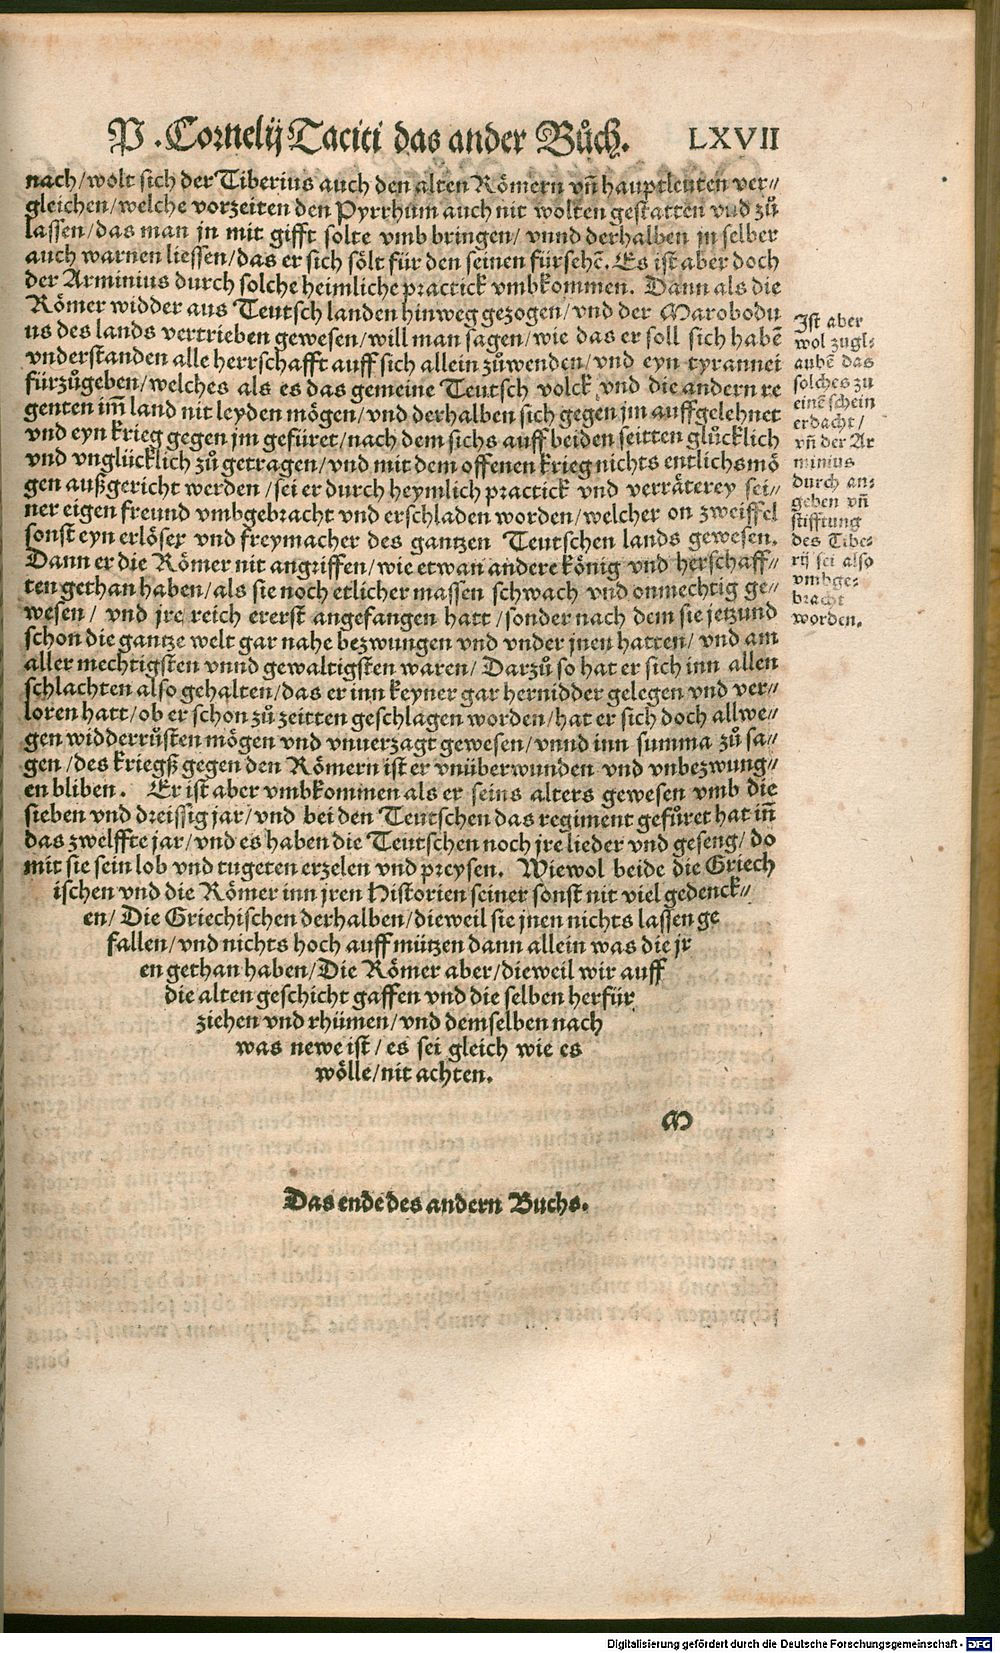 P. Cornelij Taciti das ander Bůch. LXVII
nach/wolt sich der Tiberius auch den alten Römern vñ hauptleuten ver⸗
gleichen/welche vorzeiten den Pyrrhum auch nit wolten gestatten vnd zů
lassen/das man jn mit gifft solte vmb bringen/ vnnd derhalben jn selber
auch warnen liessen/das er sich sölt für den seinen fürsehẽ. Es ist aber doch
der Arminius durch solche heimliche practick vmbkommen. Dann als die
Römer widder aus Teutsch landen hinweg gezogen/vnd der Marobodu
us des lands vertrieben gewesen/will man sagen/wie das er soll sich habẽ
vnderstanden alle herrschafft auff sich allein zůwenden/vnd eyn tyrannei
fürzůgeben/welches als es das gemeine Teutsch volck vnd die andern re
genten im̃ land nit leyden mögen/vnd derhalben sich gegen jm auffgelehnet
vnd eyn krieg gegen jm gefüret/nach dem sichs auff beiden seitten glücklich
vnd vnglücklich zů getragen/vnd mit dem offenen krieg nichts entlichs mö
gen außgericht werden/sei er durch heymlich practick vnd verräterey sei⸗
ner eigen freund vmbgebracht vnd erschladen worden/welcher on zweiffel
sonst eyn erlöser vnd freymacher des gantzen Teutschen lands gewesen.
Dann er die Römer nit angriffen/wie etwan andere könig vnd herschaff⸗
ten gethan haben/als sie noch etlicher massen schwach vnd onmechtig ge⸗
wesen/ vnd jre reich ererst angefangen hatt/sonder nach dem sie jetzund
schon die gantze welt gar nahe bezwungen vnd vnder jnen hatten/ vnd am
aller mechtigsten vnnd gewaltigsten waren/ Darzů so hat er sich inn allen
schlachten also gehalten/das er inn keyner gar hernidder gelegen vnd ver⸗
loren hatt/ob er schon zů zeitten geschlagen worden/hat er sich doch allwe⸗
gen widderrüsten mögen vnd vnuerzagt gewesen/vnnd inn summa zů sa⸗
gen/des kriegß gegen den Römern ist er vnüberwunden vnd vnbezwung⸗
en bliben. Er ist aber vmbkommen als er seins alters gewesen vmb die
sieben vnd dreissig jar/vnd bei den Teutschen das regiment gefüret hat in̄
das zwelffte jar/vnd es haben die Teutschen noch jre lieder vnd geseng/do
mit sie sein lob vnd tugeten erzelen vnd preysen. Wiewol beide die Griech
ischen vnd die Römer inn jren Historien seiner sonst nit viel gedenck⸗
en/ Die Griechischen derhalben/dieweil sie jnen nichts lassen ge
fallen/vnd nichts hoch auff mützen dann allein was die jr
en gethan haben/Die Römer aber/dieweil wir auff
die alten geschicht gaffen vnd die selben herfür
ziehen vnd rhümen/vnd demselben nach
was newe ist/es sei gleich wie es
wölle/nit achten.
M
Das ende des andern Buchs.
Ist aber
wol zugl⸗
aubẽ das
solches zu
einẽ schein
erdacht/
vñ der Ar
minius
durch an⸗
geben vñ
stifftung
des Tibe⸗
rij sei also
vmbge⸗
bracht
worden.
Digitalisierung gefördert durch die Deutsche Forschungsgemeinschaft - DFG